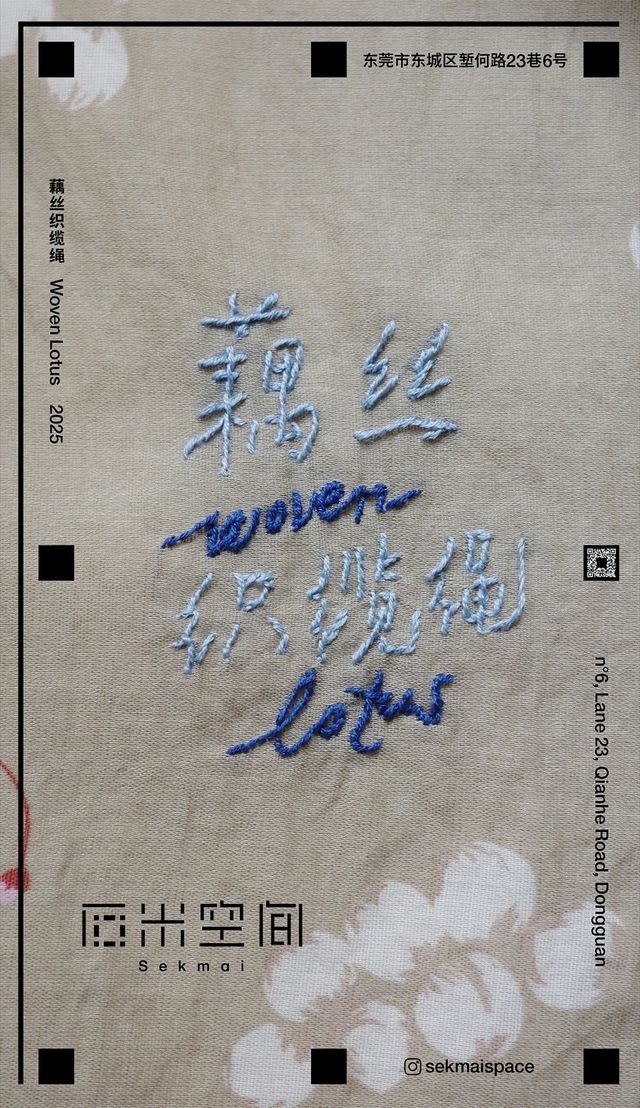 东莞市东城区堑何路23巷6号
藕丝织缆绳 Woven Lotus 2025
藕丝
woven
织缆绳
lotus
n°6, Lane 23, Qianhe Road, Dongguan
石米空间
Sekmai
sekmaispace